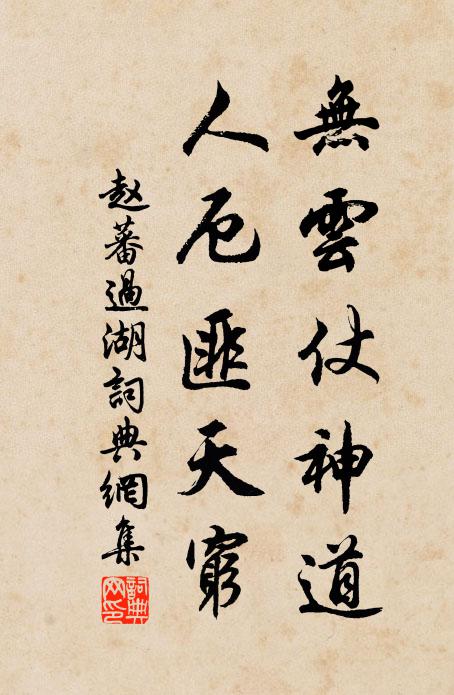 無雲仗神道
人厄匪天窮
赵蕃過湖詞典網集
詞典网印